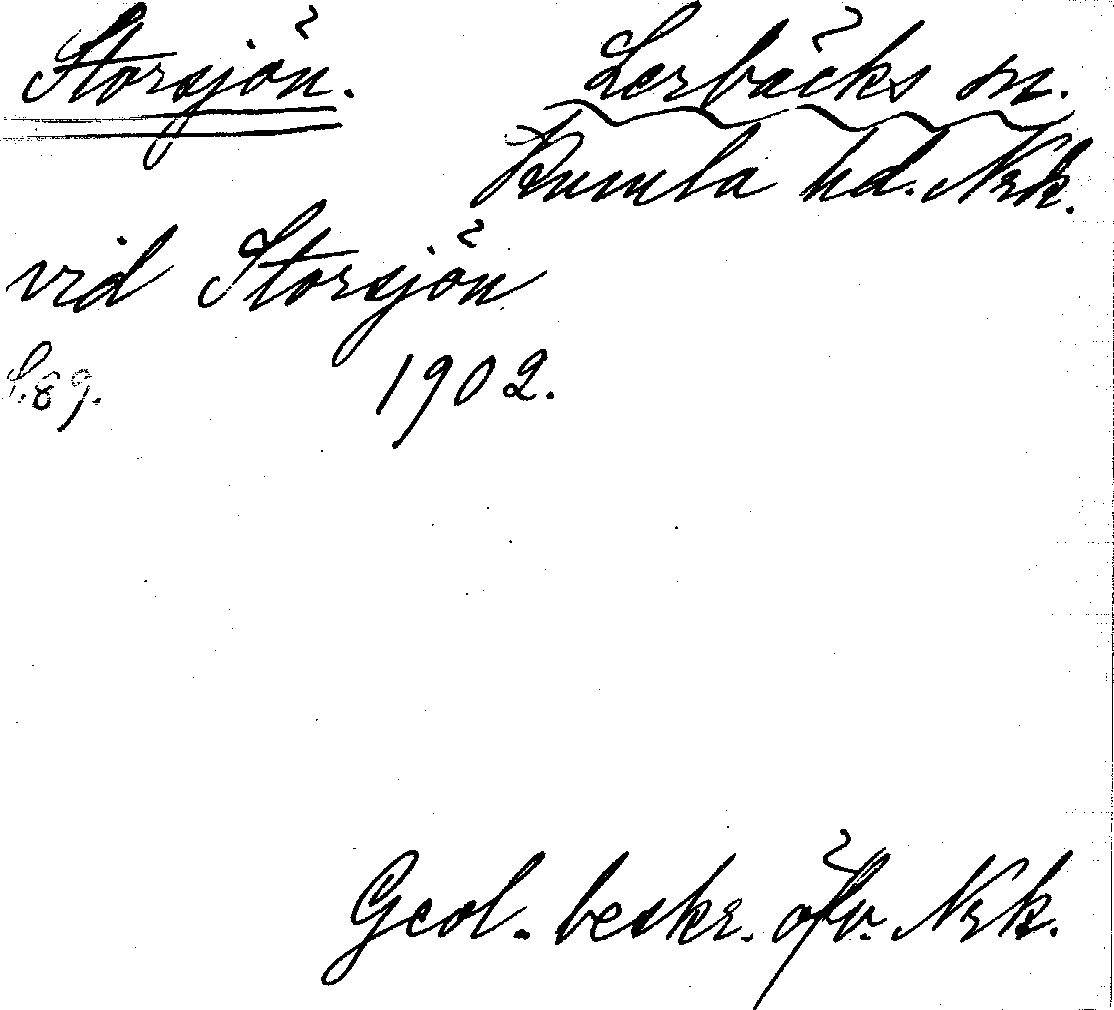 Storsjön. Lerbäcks sn.
Kumla hd. Nrk.
vid Storsjön
S.89. 1902.
Geol. beskr. öfv. Nrk.